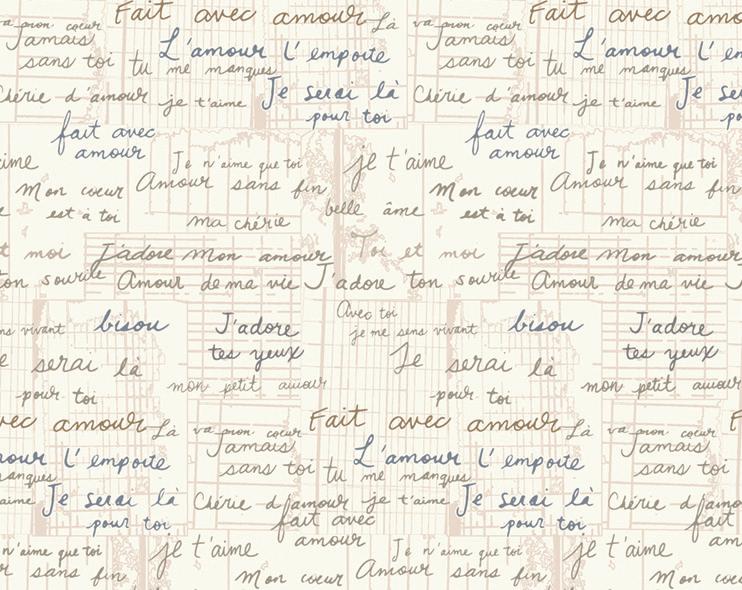 Fait avec amour Là va mon cœur Fait avec amo
va mon cœur
Jamais Jamais
L'amour l'emporte L'amour l'em
sans toi tu me manques sans toi tu me manques
Chérie d'amour je t'aime Je serai là Chérie d'amour je t'aime Je se
pour toi pou
fait avec fait avec
amour amour
aime Je n'aime que toi je t'aime Je n'aime que toi
Mon cœur Amour sans fin Mon cœur Amour sans fin
est à toi belle âme est à toi
ma chérie ma chérie
t moi J'adore mon amour Toi et moi J'adore mon amour
ton sourire Amour de ma vie J'adore ton sourire Amour de ma vie J
Avec toi
ns vivant bisou J'adore je me sens vivant bisou J'adore
e serai là tes yeux Je serai là tes yeux
pour toi mon petit amour pour toi mon petit amour
vec amour Là va mon cœur Fait avec amour Là va mon cœur F
Jamais Jamais
mour l'emporte L'amour l'emporte
manques sans toi tu me manques sans toi
aime Je serai là Chérie d'amour je t'aime Je serai là Chérie d'amour
pour toi fait avec pour toi fait
amour amour
n'aime que toi je t'aime Je n'aime que toi je t'aime
r sans fin Mon cœur Amour sans fin Mon cœur